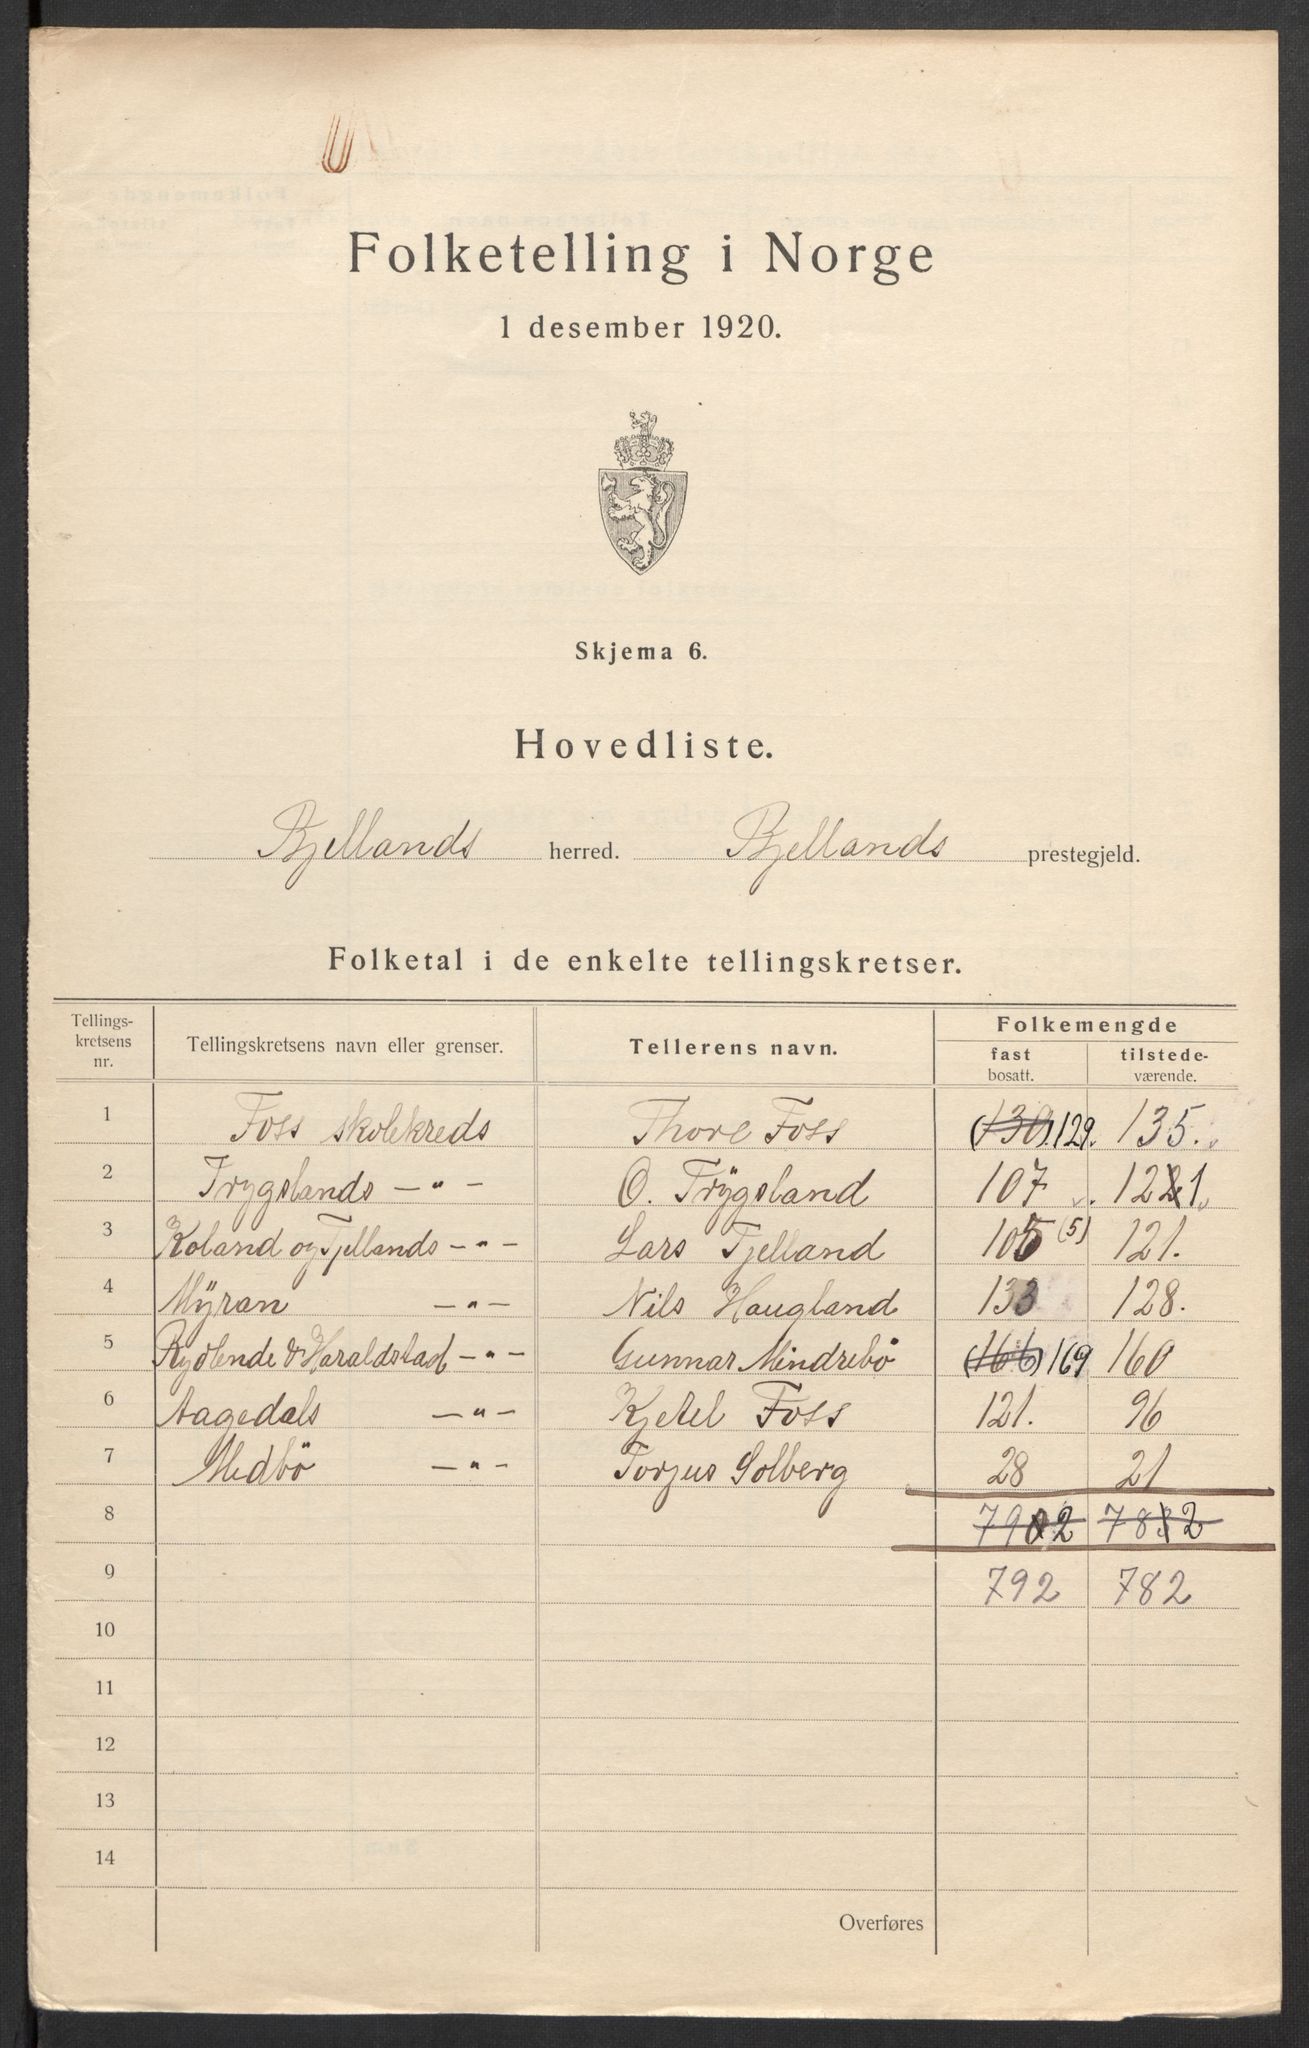 Folketelling i Norge
1 desember 1920.
Skjema 6.
Hovedliste.
Bjellands herred. Bjellands prestegjeld.
Folketal i de enkelte tellingskretser.
Tellings-
kretsens
nr.
Tellingskretsens navn eller grenser.
Tellerens navn.
Folkemengde
fast
bosatt.
tilstede-
værende.
1 Foss skolekreds Thore Foss (130). 129. 135.
2 Trygslands —"— O. Trÿgsland 107 121
3 Koland og Tjellands —"— Lars Tjelland 105 (5) 121.
4 Mÿran —"— Nils Haugland 133 128.
5 Rydlende & Haraldstad —"— Gunnar Mindrebö (166) 169 160
6 Aagedals —"— Kjetel Foss 121. 96
7 Medbö —"— Torjus Solberg 28 21
8 792 782
9 792 782
10
11
12
13
14
Overføres